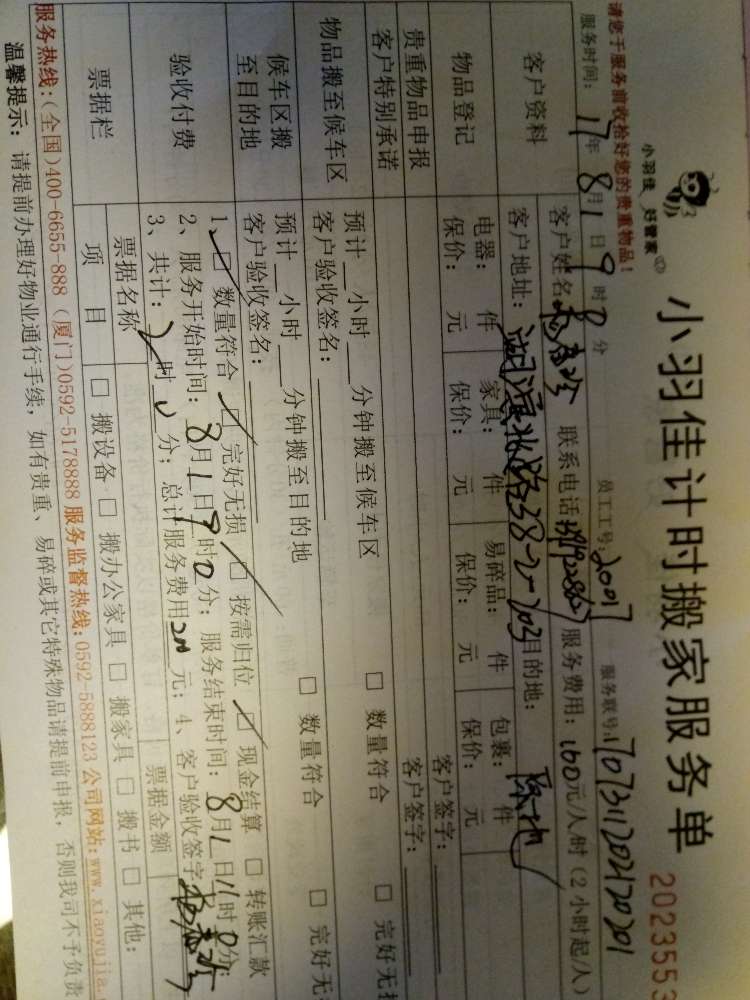 小羽佳 好管家
小羽佳计时搬家服务单
2023553
请您于服务前收拾好您的贵重物品！
员工工号：2007
服务联号：17073112021720201
服务时间：17年8月1日9时0分
客户资料
客户姓名： 联系电话 服务费用：160元/人/时（2小时起/人）
客户地址：湖滨北路38-2-703目的地：
物品登记
电器： 件 家具： 件 易碎品： 件 包裹： 件
保价： 元 保价： 元 保价： 元 保价： 元
客户签字：
贵重物品申报
客户特别承诺
客户签字：
物品搬至候车区
预计__小时__分钟搬至候车区 □ 数量符合 □ 完好无损
客户验收签名：
候车区搬
至目的地
预计__小时__分钟搬至目的地 □ 数量符合 □ 完好无
客户验收签名：
验收付费
1、□ 数量符合 □ 完好无损 □ 按需归位 □ 现金结算 □ 转账汇款
2、服务开始时间：8月1日9时0分；服务结束时间：8月1日11时0分；
3、共计：2时0分；总计服务费用 元；4、客户验收签字
票据栏
票据名称 票据金额
项 目 □ 搬设备 □ 搬办公家具 □ 搬家具 □ 搬书 □ 其他：
服务热线：(全国)400-6655-888 (厦门)0592-5178888 服务监督热线：0592-5888123 公司网站：www.xiaoyujia.
温馨提示：请提前办理好物业通行手续，如有贵重、易碎或其它特殊物品请提前申报，否则我司不予负责